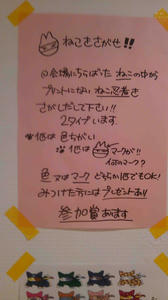 ねこをさがせ!!
@会場にちらばった ねこの中から
プリントにない ねこ忍者を
さがしだして下さい!!
2タイプいます
他は 色ちがい
他は マークが!!
何のマーク?
色 又は マーク どちらか1信でもOK!
みつけた方には プレゼントあり
参加賞あります